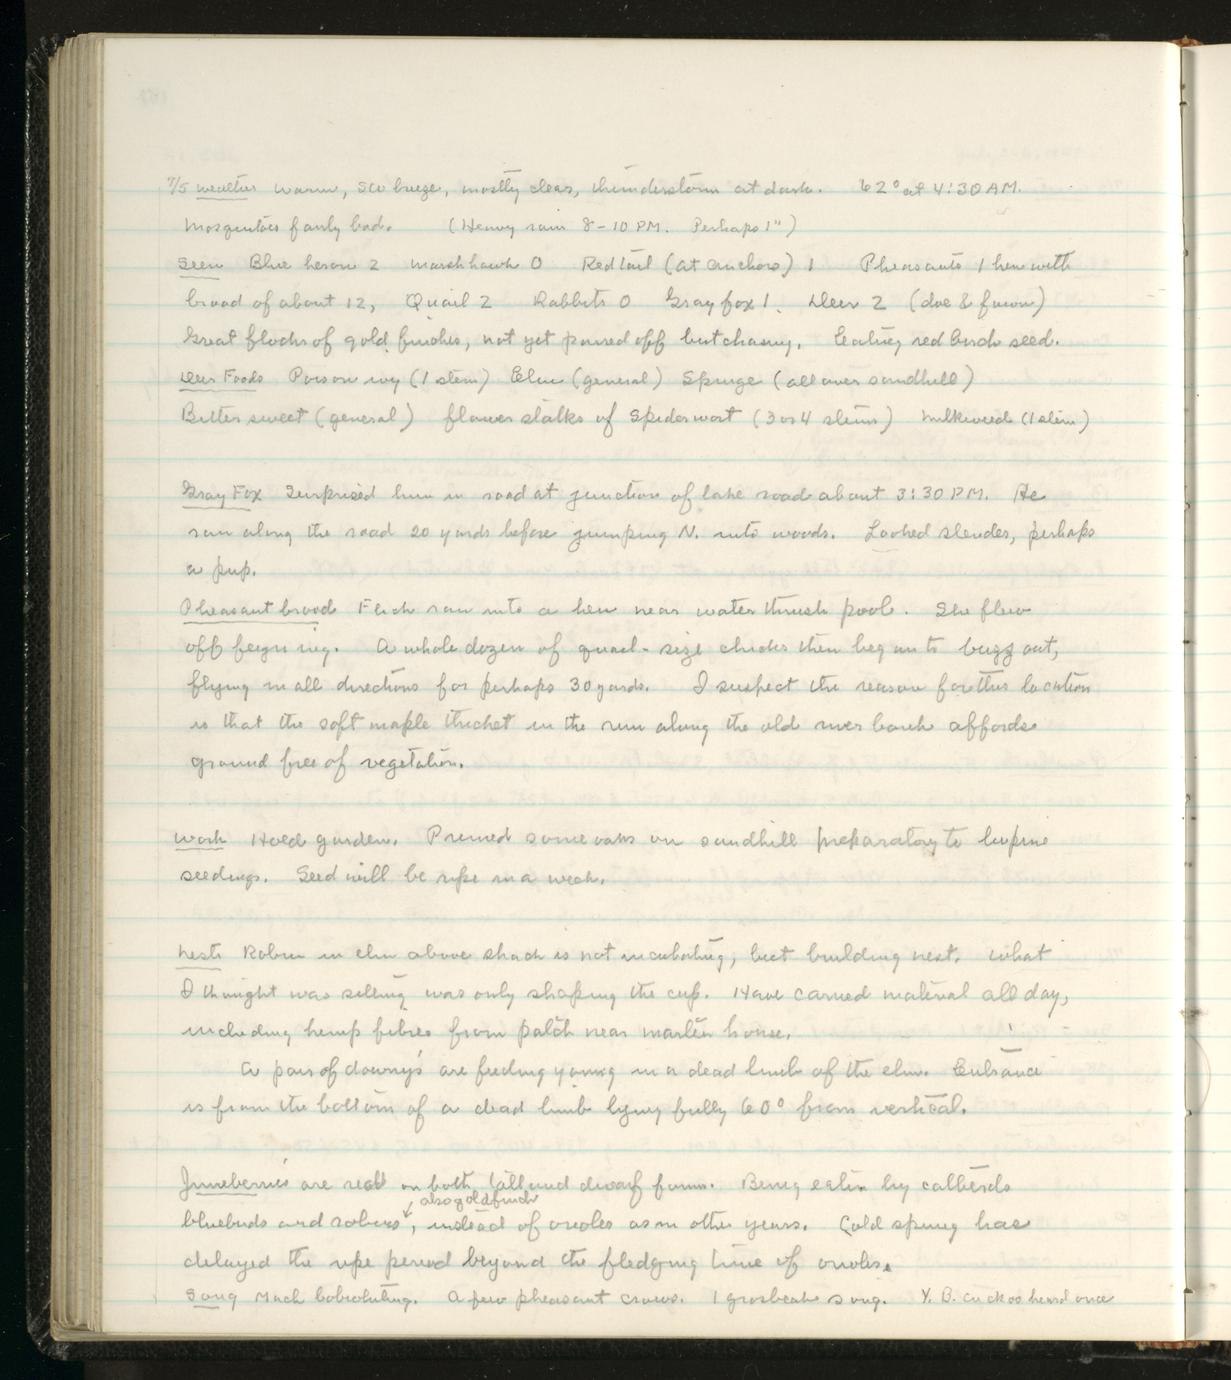 7/5 weather warm, SW breeze, mostly clear, thunderstorm at dark. 62° at 4:30 AM.
Mosquitoes fairly bad. (Heavy rain 8-10 PM. Perhaps 1")
Seen Blue heron 2 Marsh hawk 0 Redtail (at anchors) 1 Pheasants 1 hen with
brood of about 12, Quail 2 Rabbits 0 Gray fox 1. Deer 2 (doe & fawn)
Great flocks of gold finches, not yet paired off but chasing. Eating red birch seed.
Deer Foods Poison ivy (1 stem) Elm (general) Spurge (all over sandhill)
Bittersweet (general) flower stalks of Spiderwort (3 or 4 stems) Milkweed (1 stem)
Gray Fox Surprised him in road at junction of lake road about 3:30 PM. He
ran along the road 20 yards before jumping N. into woods. Looked slender, perhaps
a pup.
Pheasant brood Flick ran into a hen near water thrush pool. She flew
off feigning. A whole dozen of quail-size chicks then began to buzz out,
flying in all directions for perhaps 30 yards. I suspect the reason for this location
is that the soft maple thicket in the run along the old river bank affords
ground free of vegetation.
Work Hoed garden. Pruned some oaks on sandhill preparatory to lupine
seedings. Seed will be ripe in a week.
Nests Robin in elm above shack is not incubating, but building nest. What
I thought was setting was only shaping the cup. Have carried material all day,
including hemp fibres from patch near martin house.
A pair of downy's are feeding young in a dead limb of the elm. Entrance
is from the bottom of a dead limb lying fully 60° from vertical.
Juneberries are red on both tall and dwarf forms. Being eaten by catbirds
also goldfinch
bluebirds and robins, instead of orioles as in other years. Cold spring has
delayed the ripe period beyond the fledging time of orioles.
Song Much bobwhiting. A few pheasant crows. 1 grosbeak song. Y. B. cuckoo heard once